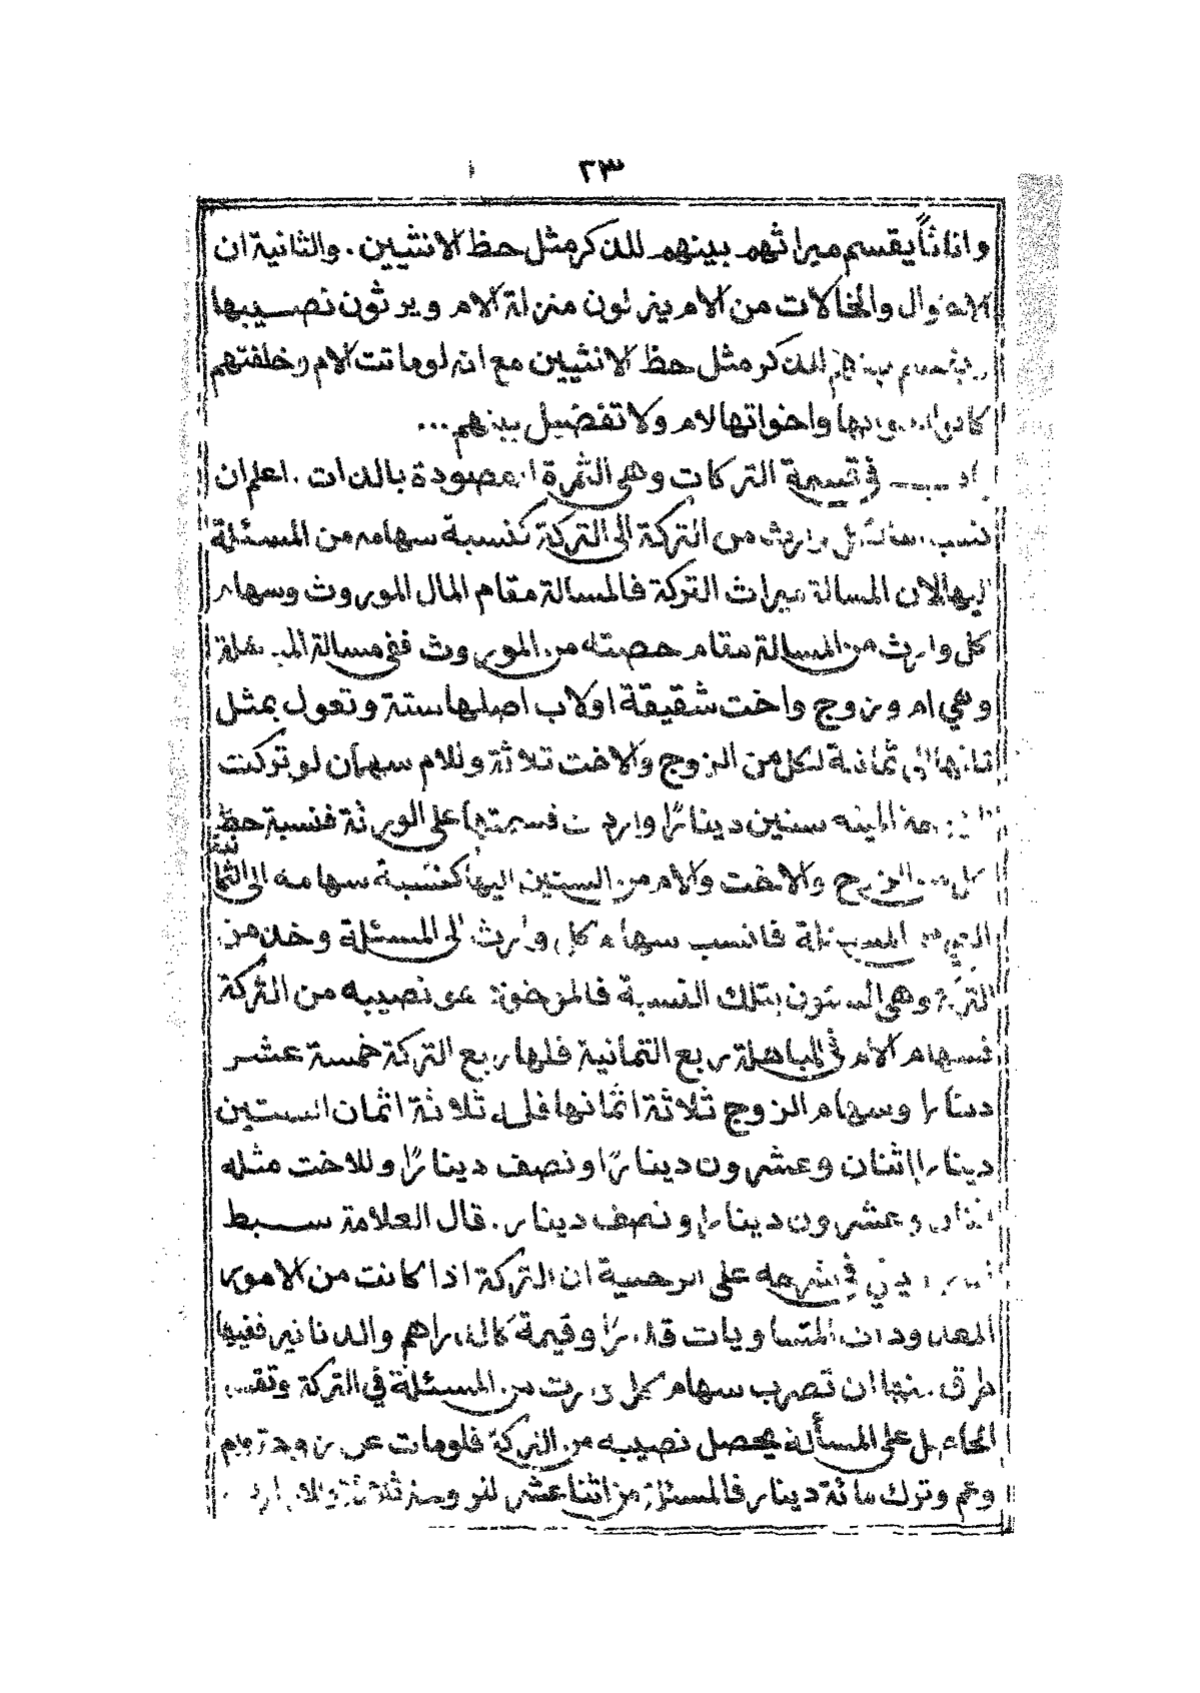 ٢٣
واناثاً يقسم ميراثهم بينهم للذكر مثل حظ الانثيين. والثانية ان
الاخوال والخالات من الام ينزلون منزلة الام ويرثون نصيبها
بينهم للذكر مثل حظ الانثيين مع انه لوماتت الام وخلفتهم
كانوا واخواتها لام ولا تفضيل بينهم...
في قسيمة التركات وهي الثمرة المقصودة بالذات. اعلم ان
نسبة كل وارث من التركة الى التركة كنسبة سهامه من المسئلة
اليها لان المسالة ميراث التركة فالمسالة مقام المال الموروث وسهام
كل وارث من المسالة مقام حصته من الموروث ففي مسالة المباهلة
وهي ام وزوج واخت شقيقة اولاب اصلها ستة وتعول بمثل
ثلثها الى ثمانية لكل من الزوج والاخت ثلاثة وللام سهمان لو تركت
ستين دينارًا واردت قسمتها على الورثة فنسبة حظ
كل من الزوج والاخت والام من الستين اليها كنسبة سهامه الى الثمانية
التي هي المسئلة فانسب سهام كل وارث الى المسئلة وخذ من
التركة وهي الستون بتلك النسبة فالمأخوذ هو نصيبه من التركة
فسهام الام في المباهلة ربع الثمانية فلها ربع التركة خمسة عشر
دينارا وسهام الزوج ثلاثة اثمانها فله ثلاثة اثمان الستين
دينارا إثنان وعشرون دينارًا ونصف دينارًا وللاخت مثله
اثنان وعشرون دينارا ونصف دينار. قال العلامة سبط
في شرحه على الرحبية ان التركة اذا كانت من الامور
المعدودات المتساويات قدرًا وقيمة كالدراهم والدنانير ففيها
طرق منها ان تضرب سهام كل وارث من المسئلة في التركة وتقسم
الحاصل على المسألة يحصل نصيبه من التركة فلومات عن زوجة وام
وعم وترك مائة دينار فالمسئلة من اثنا عشر للزوجة ثلاثة وللام اربعة